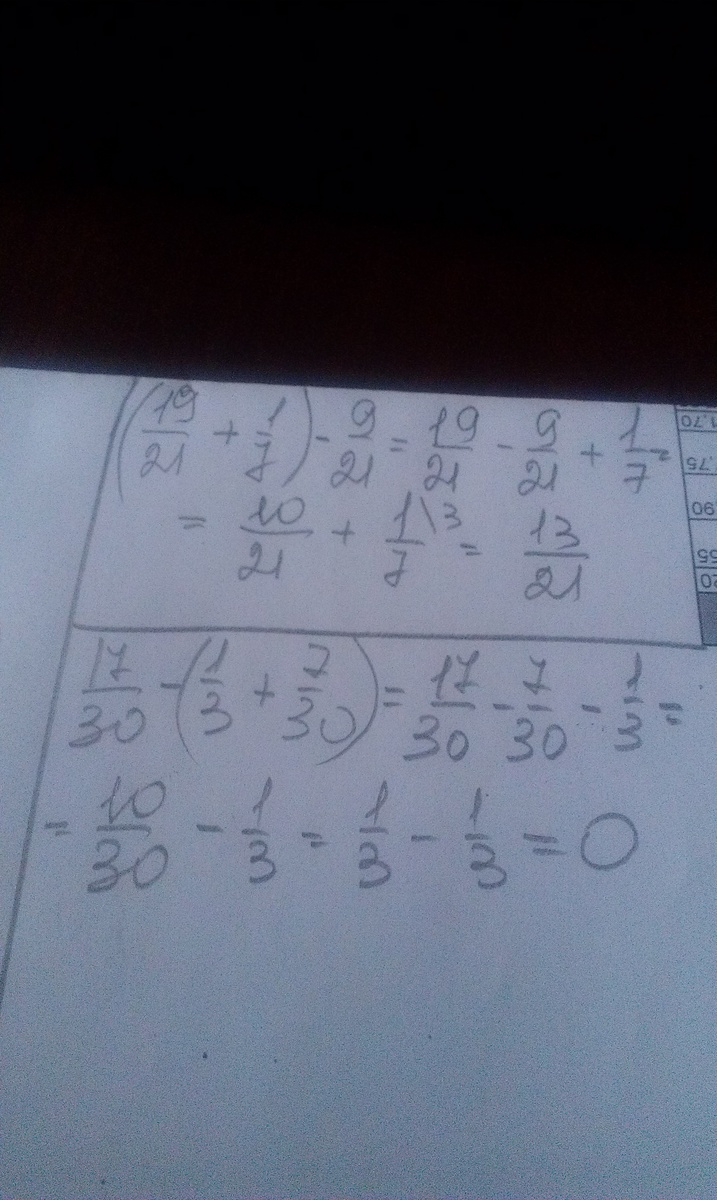 (19/21 + 1/7) - 9/21 = 19/21 - 9/21 + 1/7 =
= 10/21 + 1/7 \3 = 13/21
17/30 - (1/3 + 7/30) = 17/30 - 7/30 - 1/3 =
= 10/30 - 1/3 = 1/3 - 1/3 = 0
1,70
,75
,90
55
20